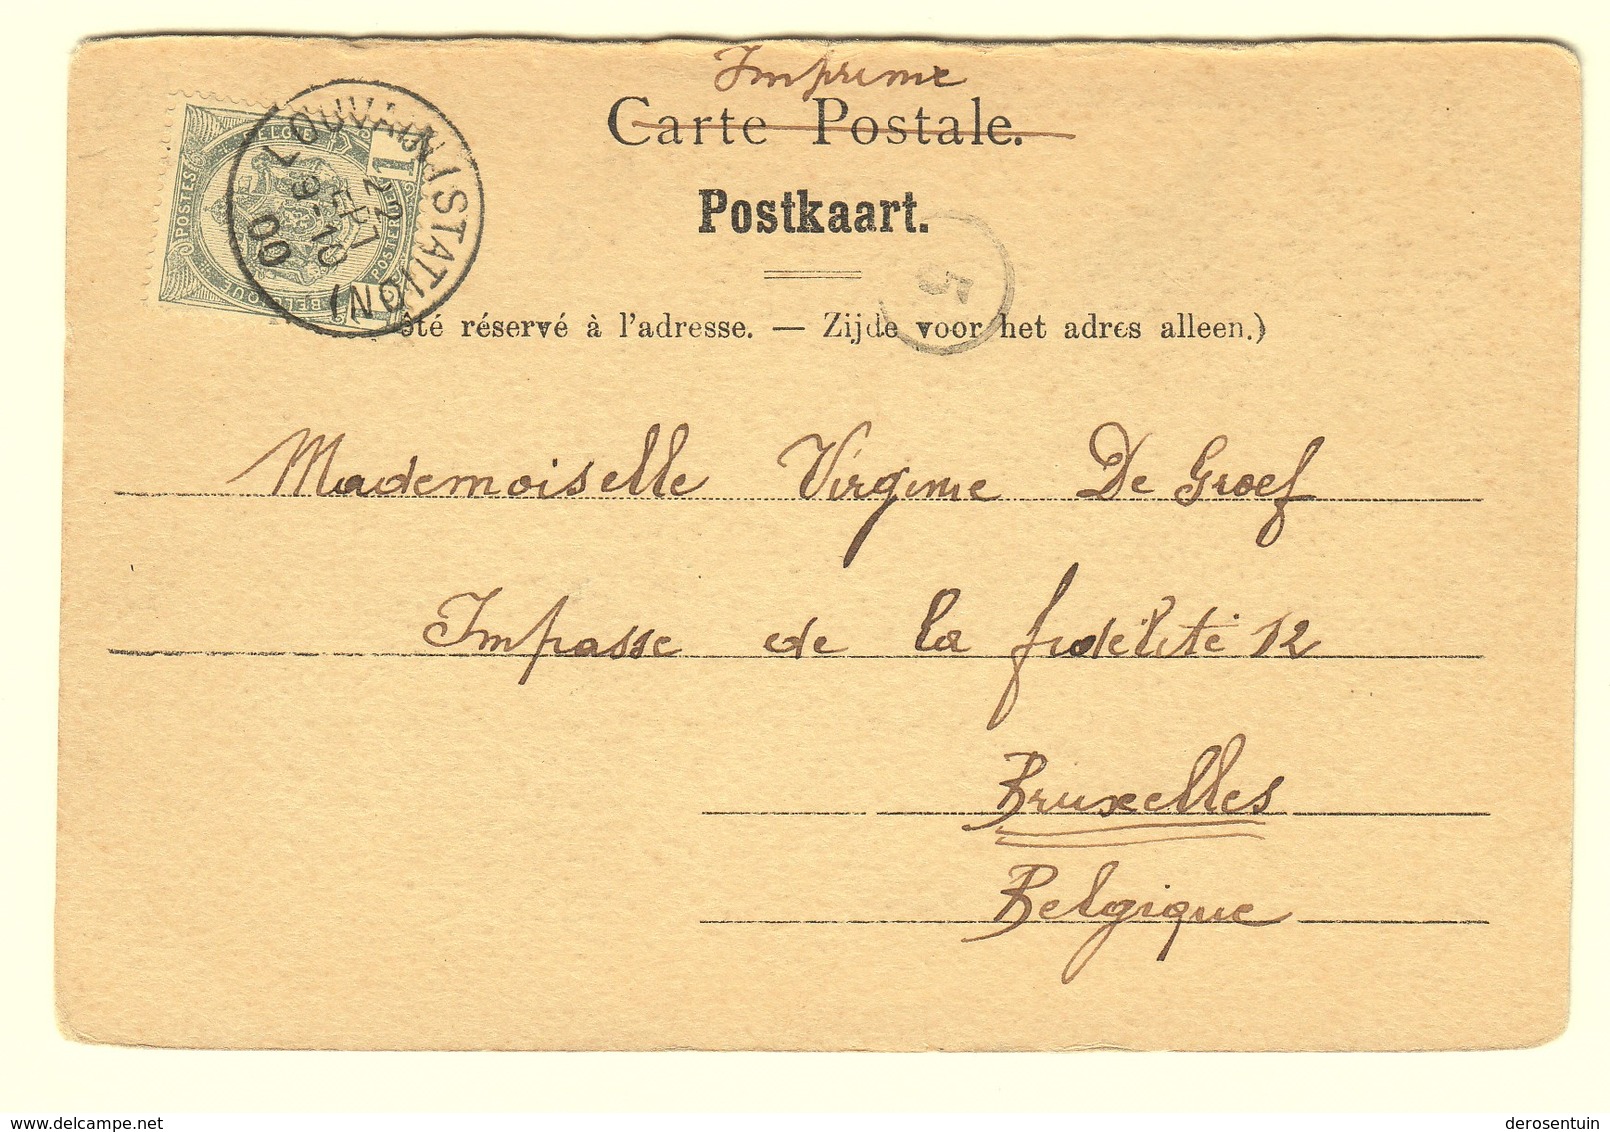 Imprime
Carte Postale.
Postkaart.
5
été réservé à l'adresse. — Zijde voor het adres alleen.)
LOUVAIN (STATION)
22
9-10
00
1
BELGIQUE
POSTES
Mademoiselle Virginie De Groef
Impasse de la fidélité 12
Bruxelles
Belgique
www.delcampe.net
derosentuin